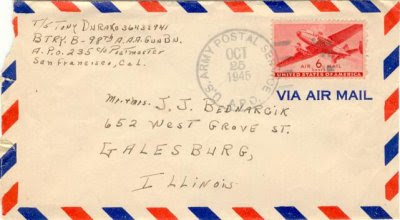 T/5 Tony Durako 36435941
BTRY. B-98TH A.A.A. Gun Bn.
A.P.O. 235 c/o Postmaster
San Francisco, Cal.
U.S. ARMY POSTAL SERVICE
OCT
25
1945
A.P.O.
AIR 6¢ MAIL
UNITED STATES OF AMERICA
VIA AIR MAIL
Mr. & Mrs. J. J. BEDNARCIK
652 WEST GROVE ST.
GALESBURG,
ILLINOIS